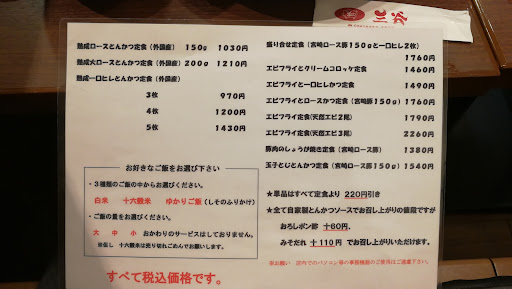 熟成ロースとんかつ定食（外国産） 150g 1030円
熟成大ロースとんかつ定食（外国産） 200g 1210円
熟成一口ヒレとんかつ定食（外国産）
3枚 970円
4枚 1200円
5枚 1430円
お好きなご飯をお選び下さい
・3種類のご飯の中からお選びください。
白米 十六穀米 ゆかりご飯（しそのふりかけ）
・ご飯の量をお選びください。
大 中 小 おかわりのサービスはしておりません。
※但し 十六穀米は売り切れごめんでお願いします。
すべて税込価格です。
盛り合せ定食（宮崎ロース豚150gと一口ヒレ2枚）
1760円
エビフライとクリームコロッケ定食 1460円
エビフライと一口ヒレかつ定食 1490円
エビフライとロースかつ定食（宮崎豚150g） 1760円
エビフライ定食（天然エビ2尾） 1790円
エビフライ定食（天然エビ3尾） 2260円
豚肉のしょうが焼き定食（宮崎ロース豚） 1380円
玉子とじとんかつ定食（宮崎ロース豚150g） 1540円
★単品はすべて定食より 220円引き
★全て自家製とんかつソースでお召し上がりの値段ですが
おろしポン酢 十60円、
みそだれ 十110円 でお召し上がりいただけます。
※お願い 店内でのパソコン等の事務機器のご使用はご遠慮下さい。